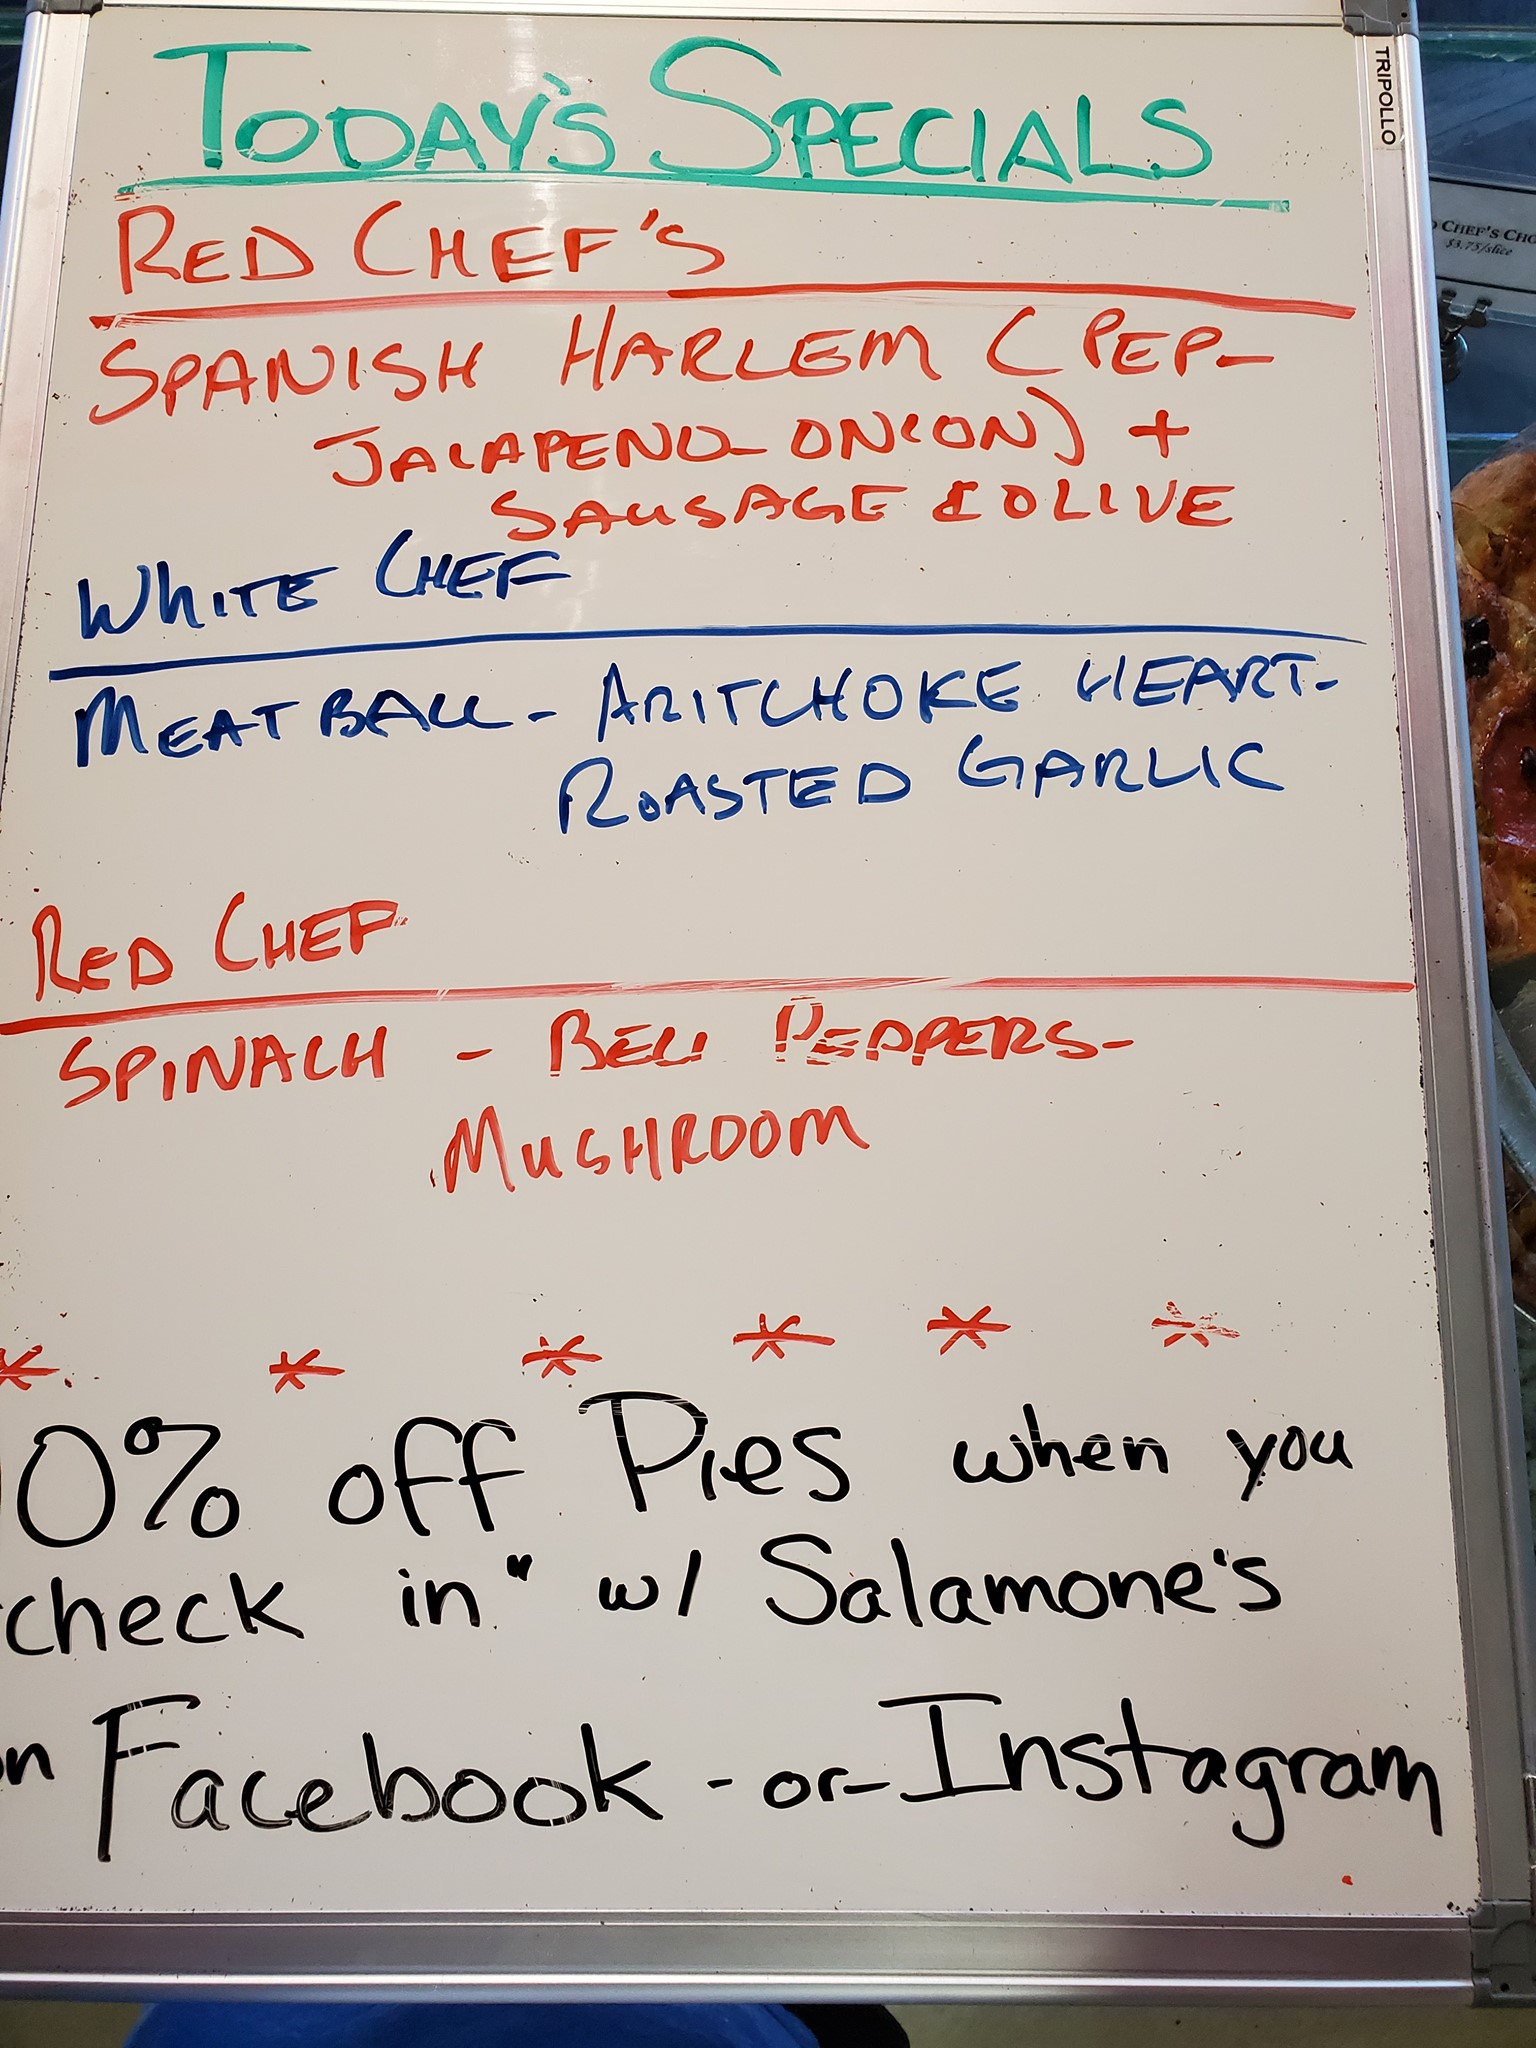 TODAY'S SPECIALS
RED CHEF'S
SPANISH HARLEM (PEP-
JALAPENO-ONION) +
SAUSAGE & OLIVE
WHITE CHEF
MEATBALL - ARITCHOKE HEART-
ROASTED GARLIC
RED CHEF
SPINACH - BELL PEPPERS-
MUSHROOM
* * * * * *
0% off Pies when you
check in" w/ Salamone's
on Facebook -or- Instagram
TRIPOLLO
CHEF'S CHO
$3.75/slice